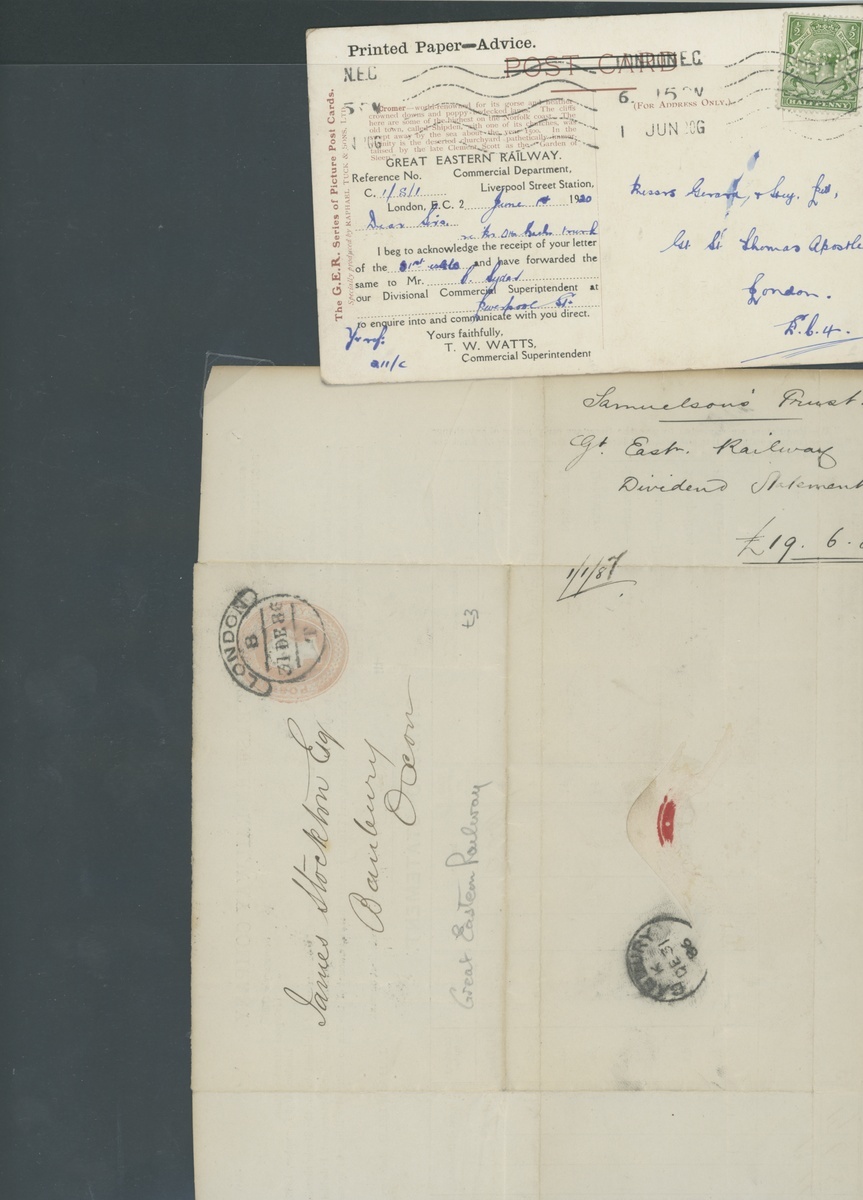 Printed Paper—Advice.
POST CARD
LONDON E.C.
N.E.C
6. 15 PM
1 JUN
(FOR ADDRESS ONLY.)
HALFPENNY
The G.E.R. Series of Picture Post Cards.
Specially produced by RAPHAEL TUCK & SONS, LTD
Cromer—world-renowned for its gorse and heather
crowned downs and poppy-bedecked lanes. The cliffs
here are some of the highest on the Norfolk coast. The
old town, called Shipden, with one of its churches, was
swept away by the sea about the year 1400. In the
vicinity is the deserted churchyard pathetically immor-
talised by the late Clement Scott as the "Garden of
Sleep."
GREAT EASTERN RAILWAY.
Reference No.
C. 1/8/1
Commercial Department,
Liverpool Street Station,
London, E.C. 2 June 1st 1920
Dear Sirs,
I beg to acknowledge the receipt of your letter
of the 31st ulto and have forwarded the
same to Mr.
our Divisional Commercial Superintendent at
Liverpool St.
to enquire into and communicate with you direct.
Yr ref.
Yours faithfully,
T. W. WATTS,
Commercial Superintendent
Messrs
Gt St Thomas Apostle
London.
E.C.4.
Samuelson's Trust.
Gt. Eastn. Railway
Dividend Statement
£19. 6.
1/1/87
LONDON
8
31 DE 86
£3
James Stockton Esq
Banbury
Oxon
Great Eastern Railway
BANBURY
K
DE 31
86